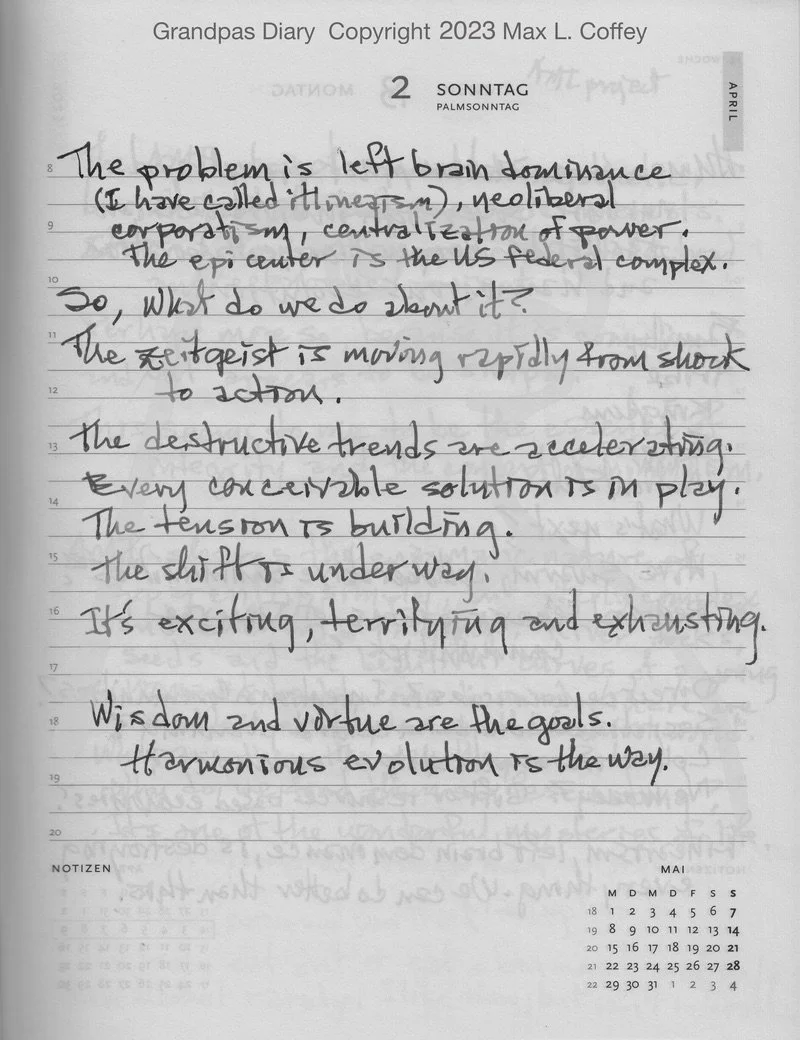 Grandpas Diary Copyright 2023 Max L. Coffey
2 SONNTAG
PALMSONNTAG
APRIL
8 The problem is left brain dominance
(I have called it linearism), neoliberal
9 corporatism, centralization of power.
The epi center is the US federal complex.
10
So, What do we do about it?
11 The zeitgeist is moving rapidly from shock
12 to action.
13 The destructive trends are accelerating.
Every conceivable solution is in play.
14 The tension is building.
15 The shift is under way.
16 It's exciting, terrifying and exhausting.
17
18 Wisdom and virtue are the goals.
Harmonious evolution is the way.
19
20
NOTIZEN
MAI
M D M D F S S
18 1 2 3 4 5 6 7
19 8 9 10 11 12 13 14
20 15 16 17 18 19 20 21
21 22 23 24 25 26 27 28
22 29 30 31 1 2 3 4